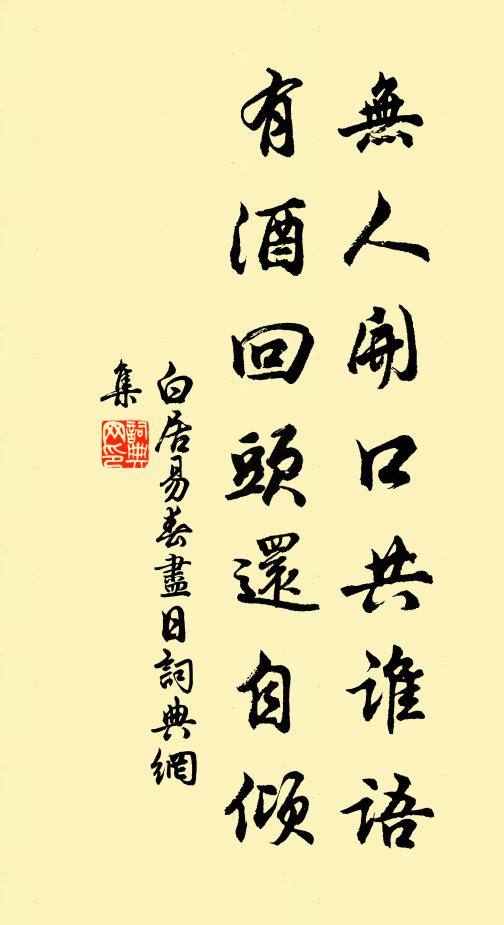 無人開口共誰語
有酒回頭還自傾
白居易春盡日詞典網
集
詞典
网印